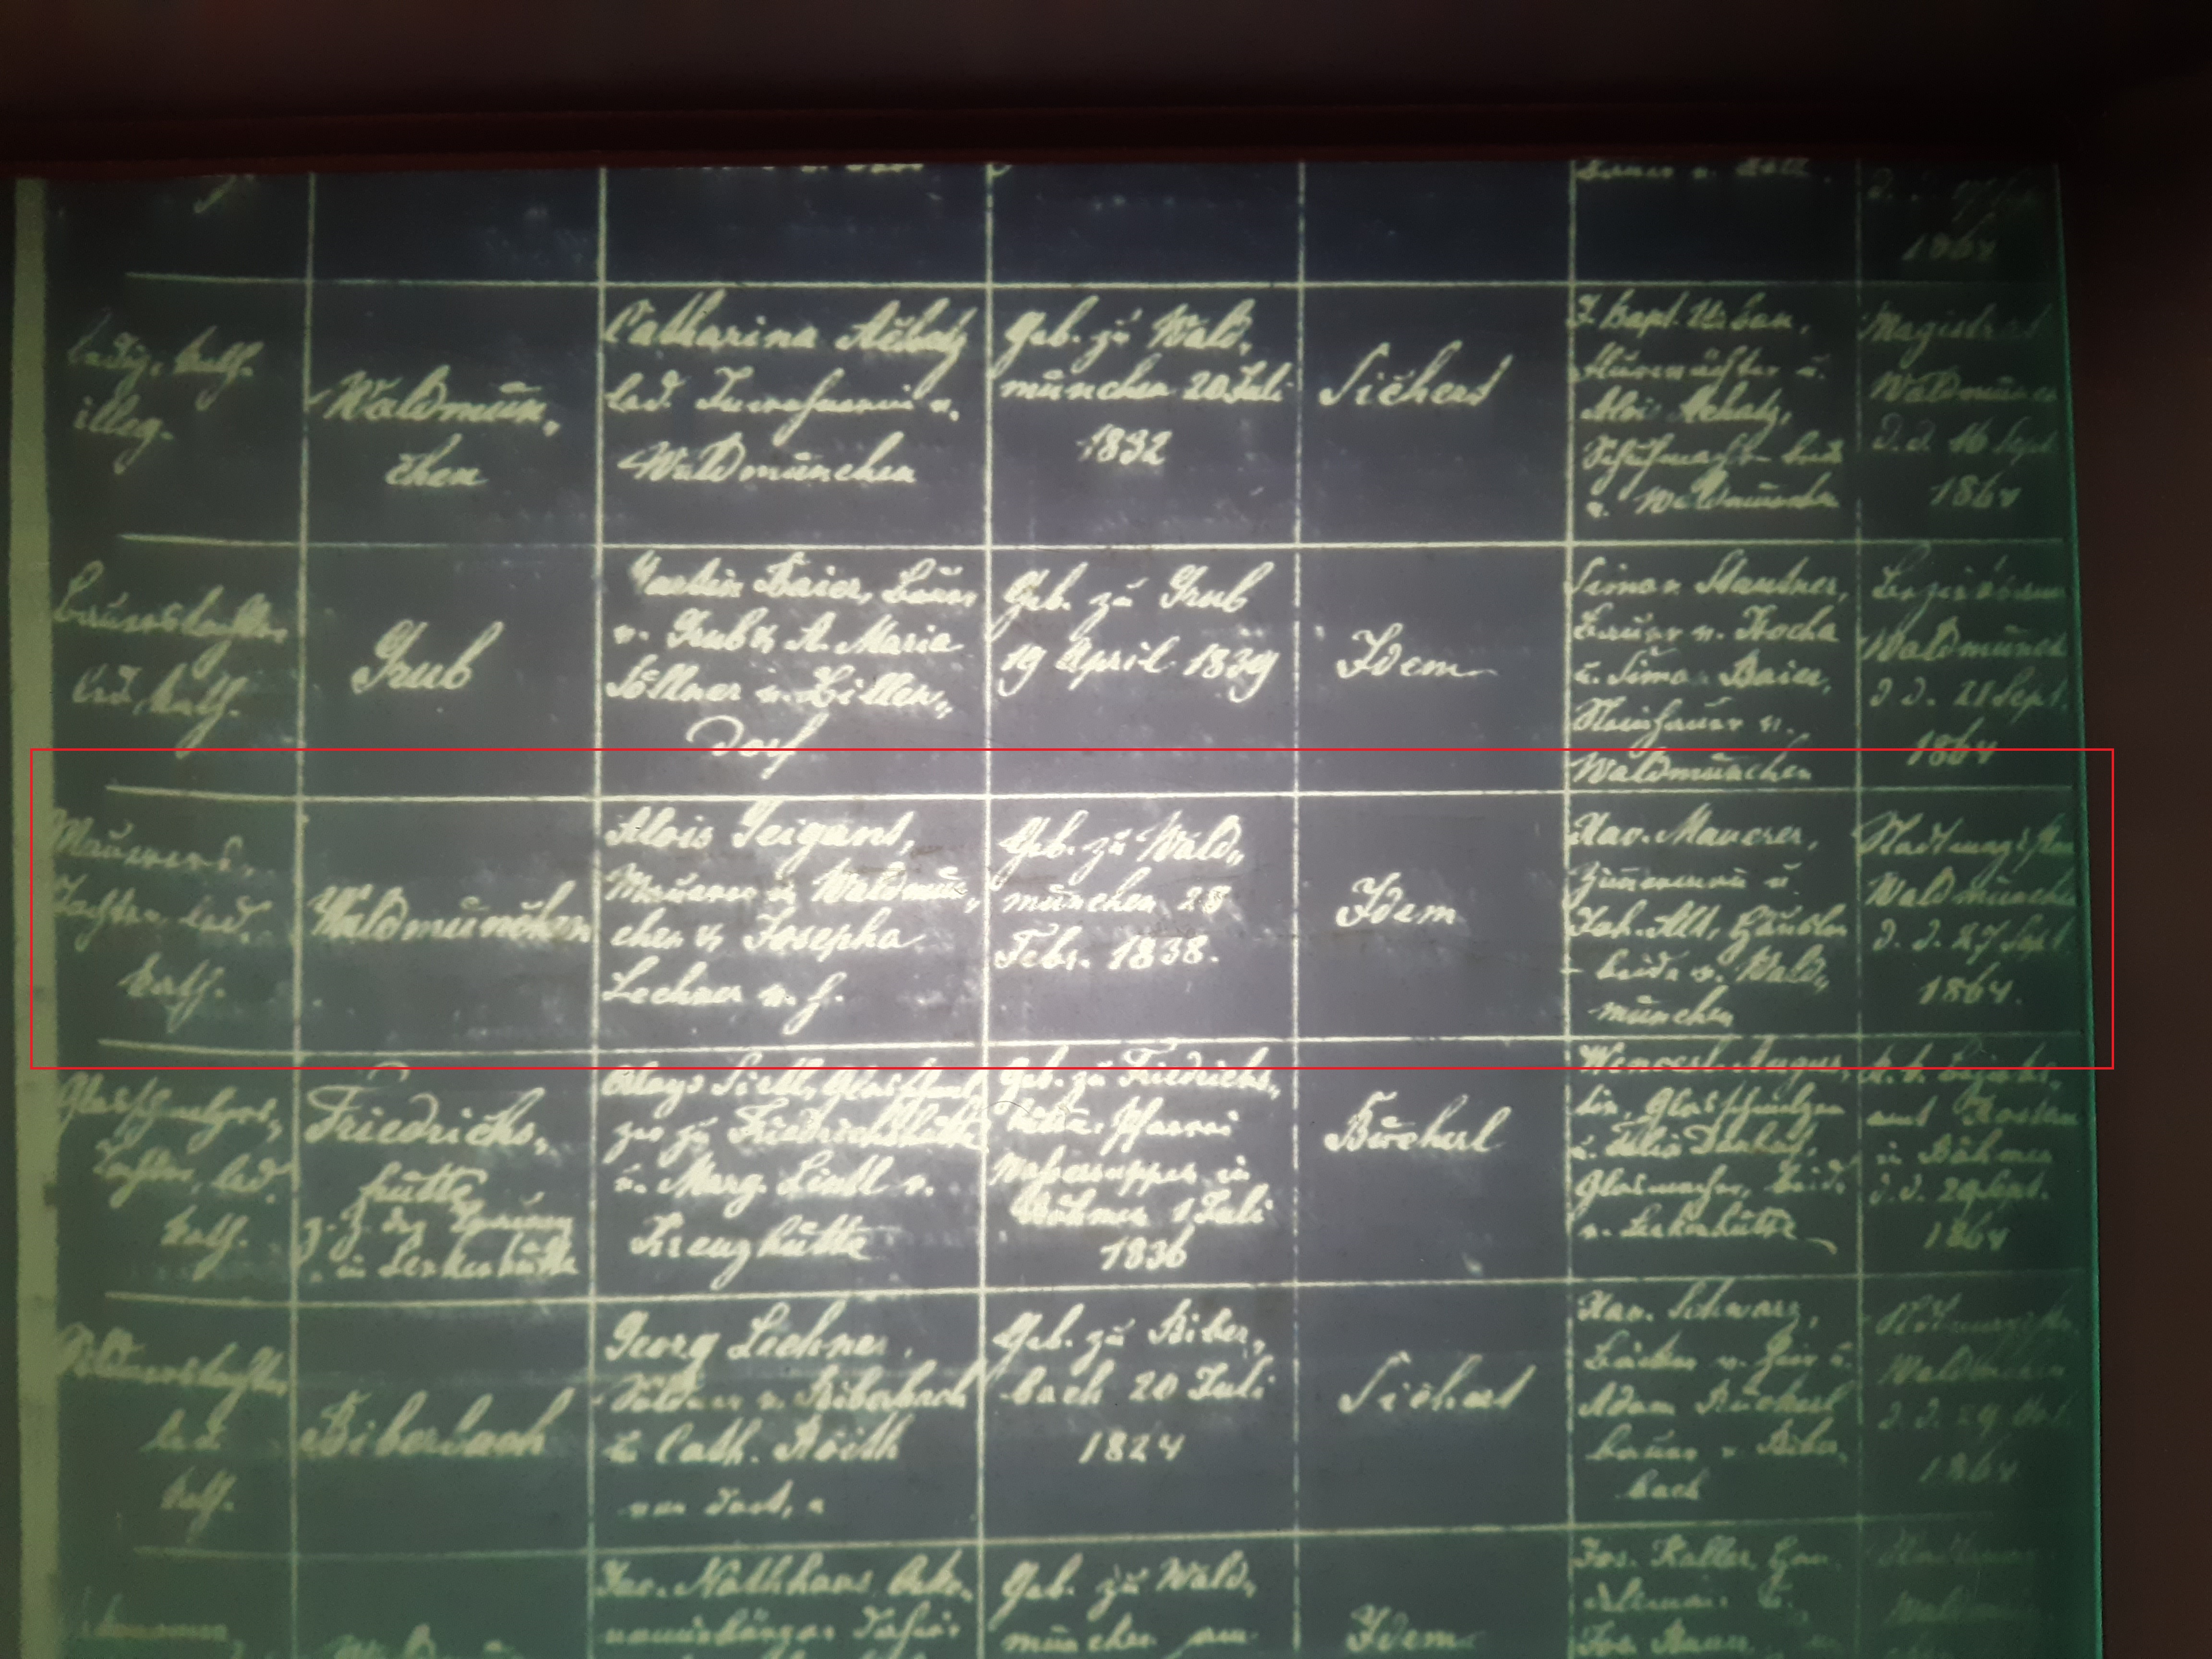 1864
ledig, kath.
illeg.
Waldmün,
chen
Catharina Achatz
led. Inwohnerin v.
Waldmünchen
Geb. zu Wald,
münchen 20 Juli
1832
Sichert
J. Bapt. Urban,
u.
Alois Achatz,
Schuhmacher beide
v. Waldmünchen
Magistrat
Waldmünchen
d. d. 16 Sept.
1864
Bauerstochter
led. kath.
Grub
Martin Baier, Bauer
v. Grub & A. Maria
Söllner v. Biller,,
dorf
Geb. zu Grub
19 April 1839
Idem
Simon Stautner,
Bauer v. Hocha
u. Simon Baier,
Steinhauer v.
Waldmünchen
Bezirksamt
Waldmünch
d. d. 21 Sept.
1864
Maurers,
Tochter led.
kath.
Waldmünchen
Alois Geigant,
Maurer v. Waldmün,,
chen & Josepha
Lechner v. h.
Geb. zu Wald,,
münchen 28
Febr. 1838.
Idem
Xav. Mauerer,
Zimmermann u.
Joh. Alt, Häusler
beide v. Wald,,
münchen
Stadtmagistrat
Waldmünchen
d. d. 27 Sept.
1864.
Glasschmelzers,,
Tochter, led.
kath.
Friedrichs,,
hütte
in Lenkenhütte
zer zu Friedrichshütte
u. Marg. Lintl v.
Kreuzhütte
Geb. zu Friedrichs,,
hütte, Pfarrei
Wassersuppen in
Böhmen 1 Juli
1836
Bücherl
Wenzesl. Augus,
tin, Glasschmelzer
Glasmacher, beide
v. Lenkenhütte
k. k. Bezirks,
amt
in Böhmen
d. d. 29 Sept.
1864
Söldnerstochter
led.
kath.
Biberbach
Georg Lechner,
Söldner v. Biberbach
& Cath. Röith
von dort,
Geb. zu Biber,,
bach 20 Juli
1824
Sichert
Xav. Schwarz,
Bäcker v. hier u.
Adam Bücherl
Bauer v. Biber,
bach
Stdtmagistr.
Waldmünchen
d. d. 29
1864
Geb. zu Wald,
münchen am
Idem